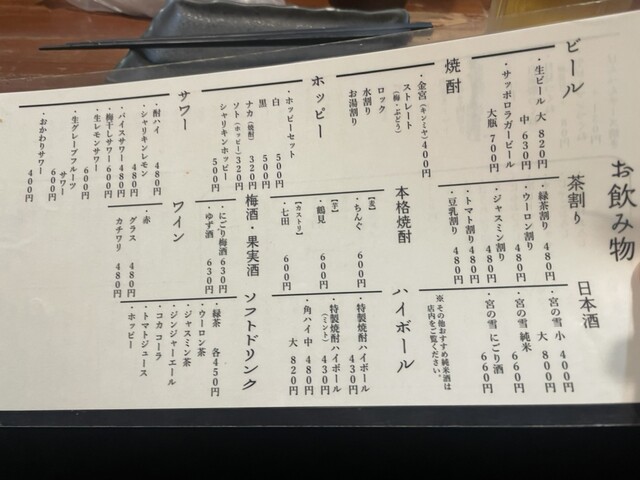 お飲み物
ビール
・生ビール 大 820円
中 630円
・サッポロラガービール
大瓶 700円
焼酎
・金宮(キンミヤ)400円
ストレート
(梅・ぶどう)
ロック
水割り
お湯割り
ホッピー
・ホッピーセット
白 500円
黒 500円
ナカ(焼酎)320円
ソト(ホッピー)320円
シャリキンホッピー
500円
サワー
・酎ハイ 480円
・シャリキンレモン
480円
・バイスサワー 480円
・梅干しサワー 600円
・生レモンサワー
600円
・生グレープフルーツ
サワー
600円
・おかわりサワー
400円
茶割り
・緑茶割り 480円
・ウーロン割り
480円
・ジャスミン割り
480円
・トマト割り 480円
・豆乳割り 480円
本格焼酎
【麦】
・ちんぐ 600円
【芋】
・鶴見 600円
【カストリ】
・七田 600円
梅酒・果実酒
・にごり梅酒 630円
・ゆず酒 630円
ワイン
・赤
グラス 480円
カチワリ 480円
日本酒
・宮の雪 小 400円
大 800円
・宮の雪 純米
660円
・宮の雪 にごり酒
660円
※その他おすすめ純米酒は
店内をご覧ください。
ハイボール
・特製焼酎ハイボール
430円
・特製焼酎ハイボール
(ミント) 430円
・角ハイ 中 480円
大 820円
ソフトドリンク
・緑茶 各450円
・ウーロン茶
・ジャスミン茶
・ジンジャーエール
・コカコーラ
・トマトジュース
・ホッピー